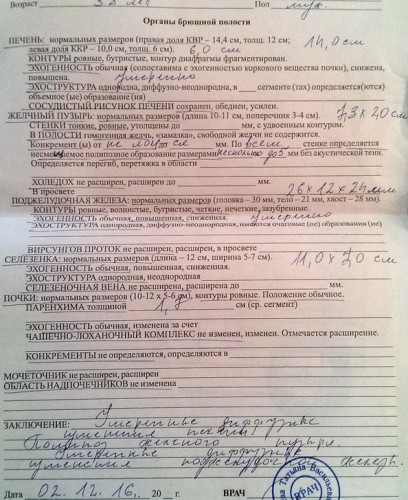 Возраст лет Пол муж.
Органы брюшной полости
ПЕЧЕНЬ: нормальных размеров (правая доля КВР – 14,4 см, толщ. 12 см; 14,0 см
левая доля ККР – 10,0 см, толщ. 6 см). 6,0 см
КОНТУРЫ ровные, бугристые, контур диафрагмы фрагментирован.
ЭХОГЕННОСТЬ обычная (сопоставима с эхогенностью коркового вещества почки), снижена,
повышена. умеренно
ЭХОСТРУКТУРА однородна, диффузно-неоднородна, в сегменте (тах) определяется(ются)
объемное (ые) образование (ия)
СОСУДИСТЫЙ РИСУНОК ПЕЧЕНИ сохранен, обеднен, усилен.
ЖЕЛЧНЫЙ ПУЗЫРЬ: нормальных размеров (длина 10-11 см, поперечник 3-4 см). 7,3 х 20 см
СТЕНКИ тонкие, ровные, утолщены до мм, с удвоенным контуром.
В ПОЛОСТИ гомотенная желчь, «замазка», свободной желчи не содержится.
Конкремент (ы) от мм. По всем стенке определяется
несмещаемое полипозное образование размерами несколько до 5 мм без акустической тени.
Определяется перегиб, перетяжка в области
ХОЛЕДОХ не расширен, расширен до мм.
В просвете 26 х 12 х 24 мм
ПОДЖЕЛУДОЧНАЯ ЖЕЛЕЗА: нормальных размеров (головка – 30 мм, тело – 21 мм, хвост – 28 мм).
КОНТУРЫ ровные, волнистые, бугристые, четкие, нечеткие, зазубренные.
ЭХОГЕННОСТЬ обычная, повышенная, сниженная. умеренно
ЭХОСТРУКТУРА однородная, диффузно-неоднородная, имеются очаговые (ое) образования (ие)
ВИРСУНГОВ ПРОТОК не расширен, расширен, в просвете
СЕЛЕЗЕНКА: нормальных размеров (длина – 12 см, ширина 5-7 см). 11,0 х 7,0 см
ЭХОГЕННОСТЬ обычная, повышенная, сниженная.
ЭХОСТРУКТУРА однородная, неоднородная
СЕЛЕЗЕНОЧНАЯ ВЕНА не расширена, расширена до мм.
ПОЧКИ: нормальных размеров (10-12 х 5-6 см), контуры ровные. Положение обычное.
ПАРЕНХИМА толщиной 1,7 см (ср. сегмент)
ЭХОГЕННОСТЬ обычная, изменена за счет
ЧАШЕЧНО-ЛОХАНОЧНЫЙ КОМПЛЕКС не изменен, изменен. Отмечается расширение.
КОНКРЕМЕНТЫ не определяются, определяются в
МОЧЕТОЧНИК не расширен, расширен
ОБЛАСТЬ НАДПОЧЕЧНИКОВ не изменена
ЗАКЛЮЧЕНИЕ: Умеренные диффузные
изменения печени.
Полипоз желчного пузыря.
Умеренные диффузные
изменения поджелудочной железы.
Дата 02.12.16г. 20 г. ВРАЧ
Татьяна ВРАЧ